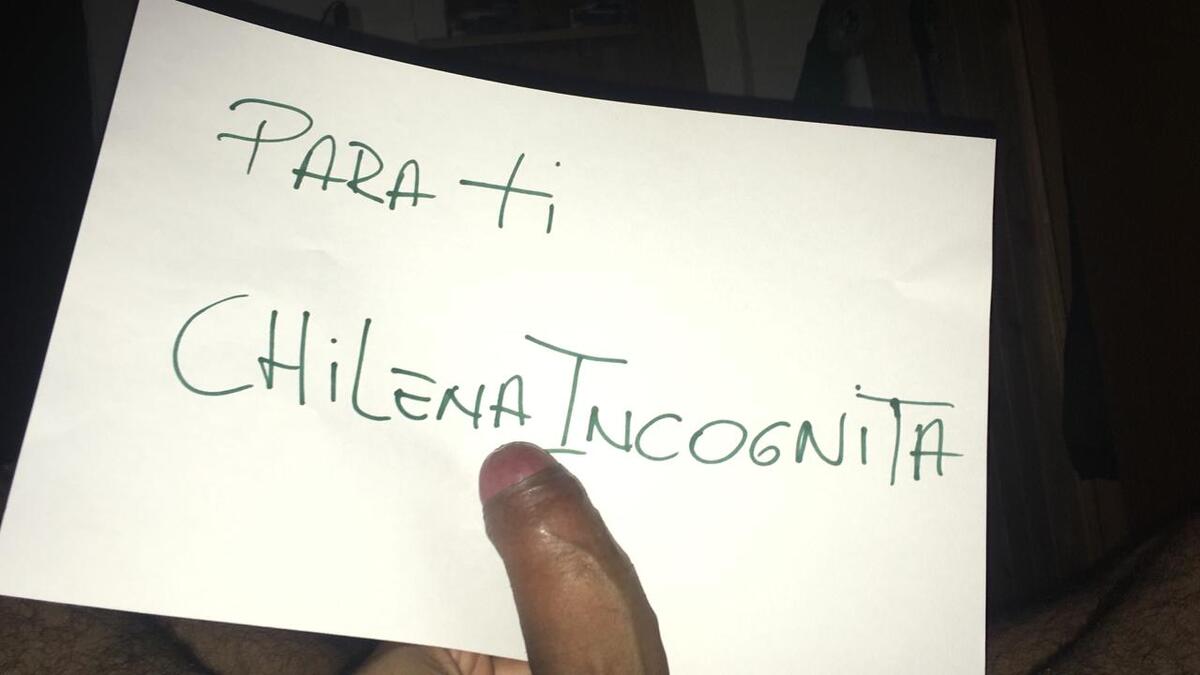 PARA ti
CHiLENA INCOGNiTA